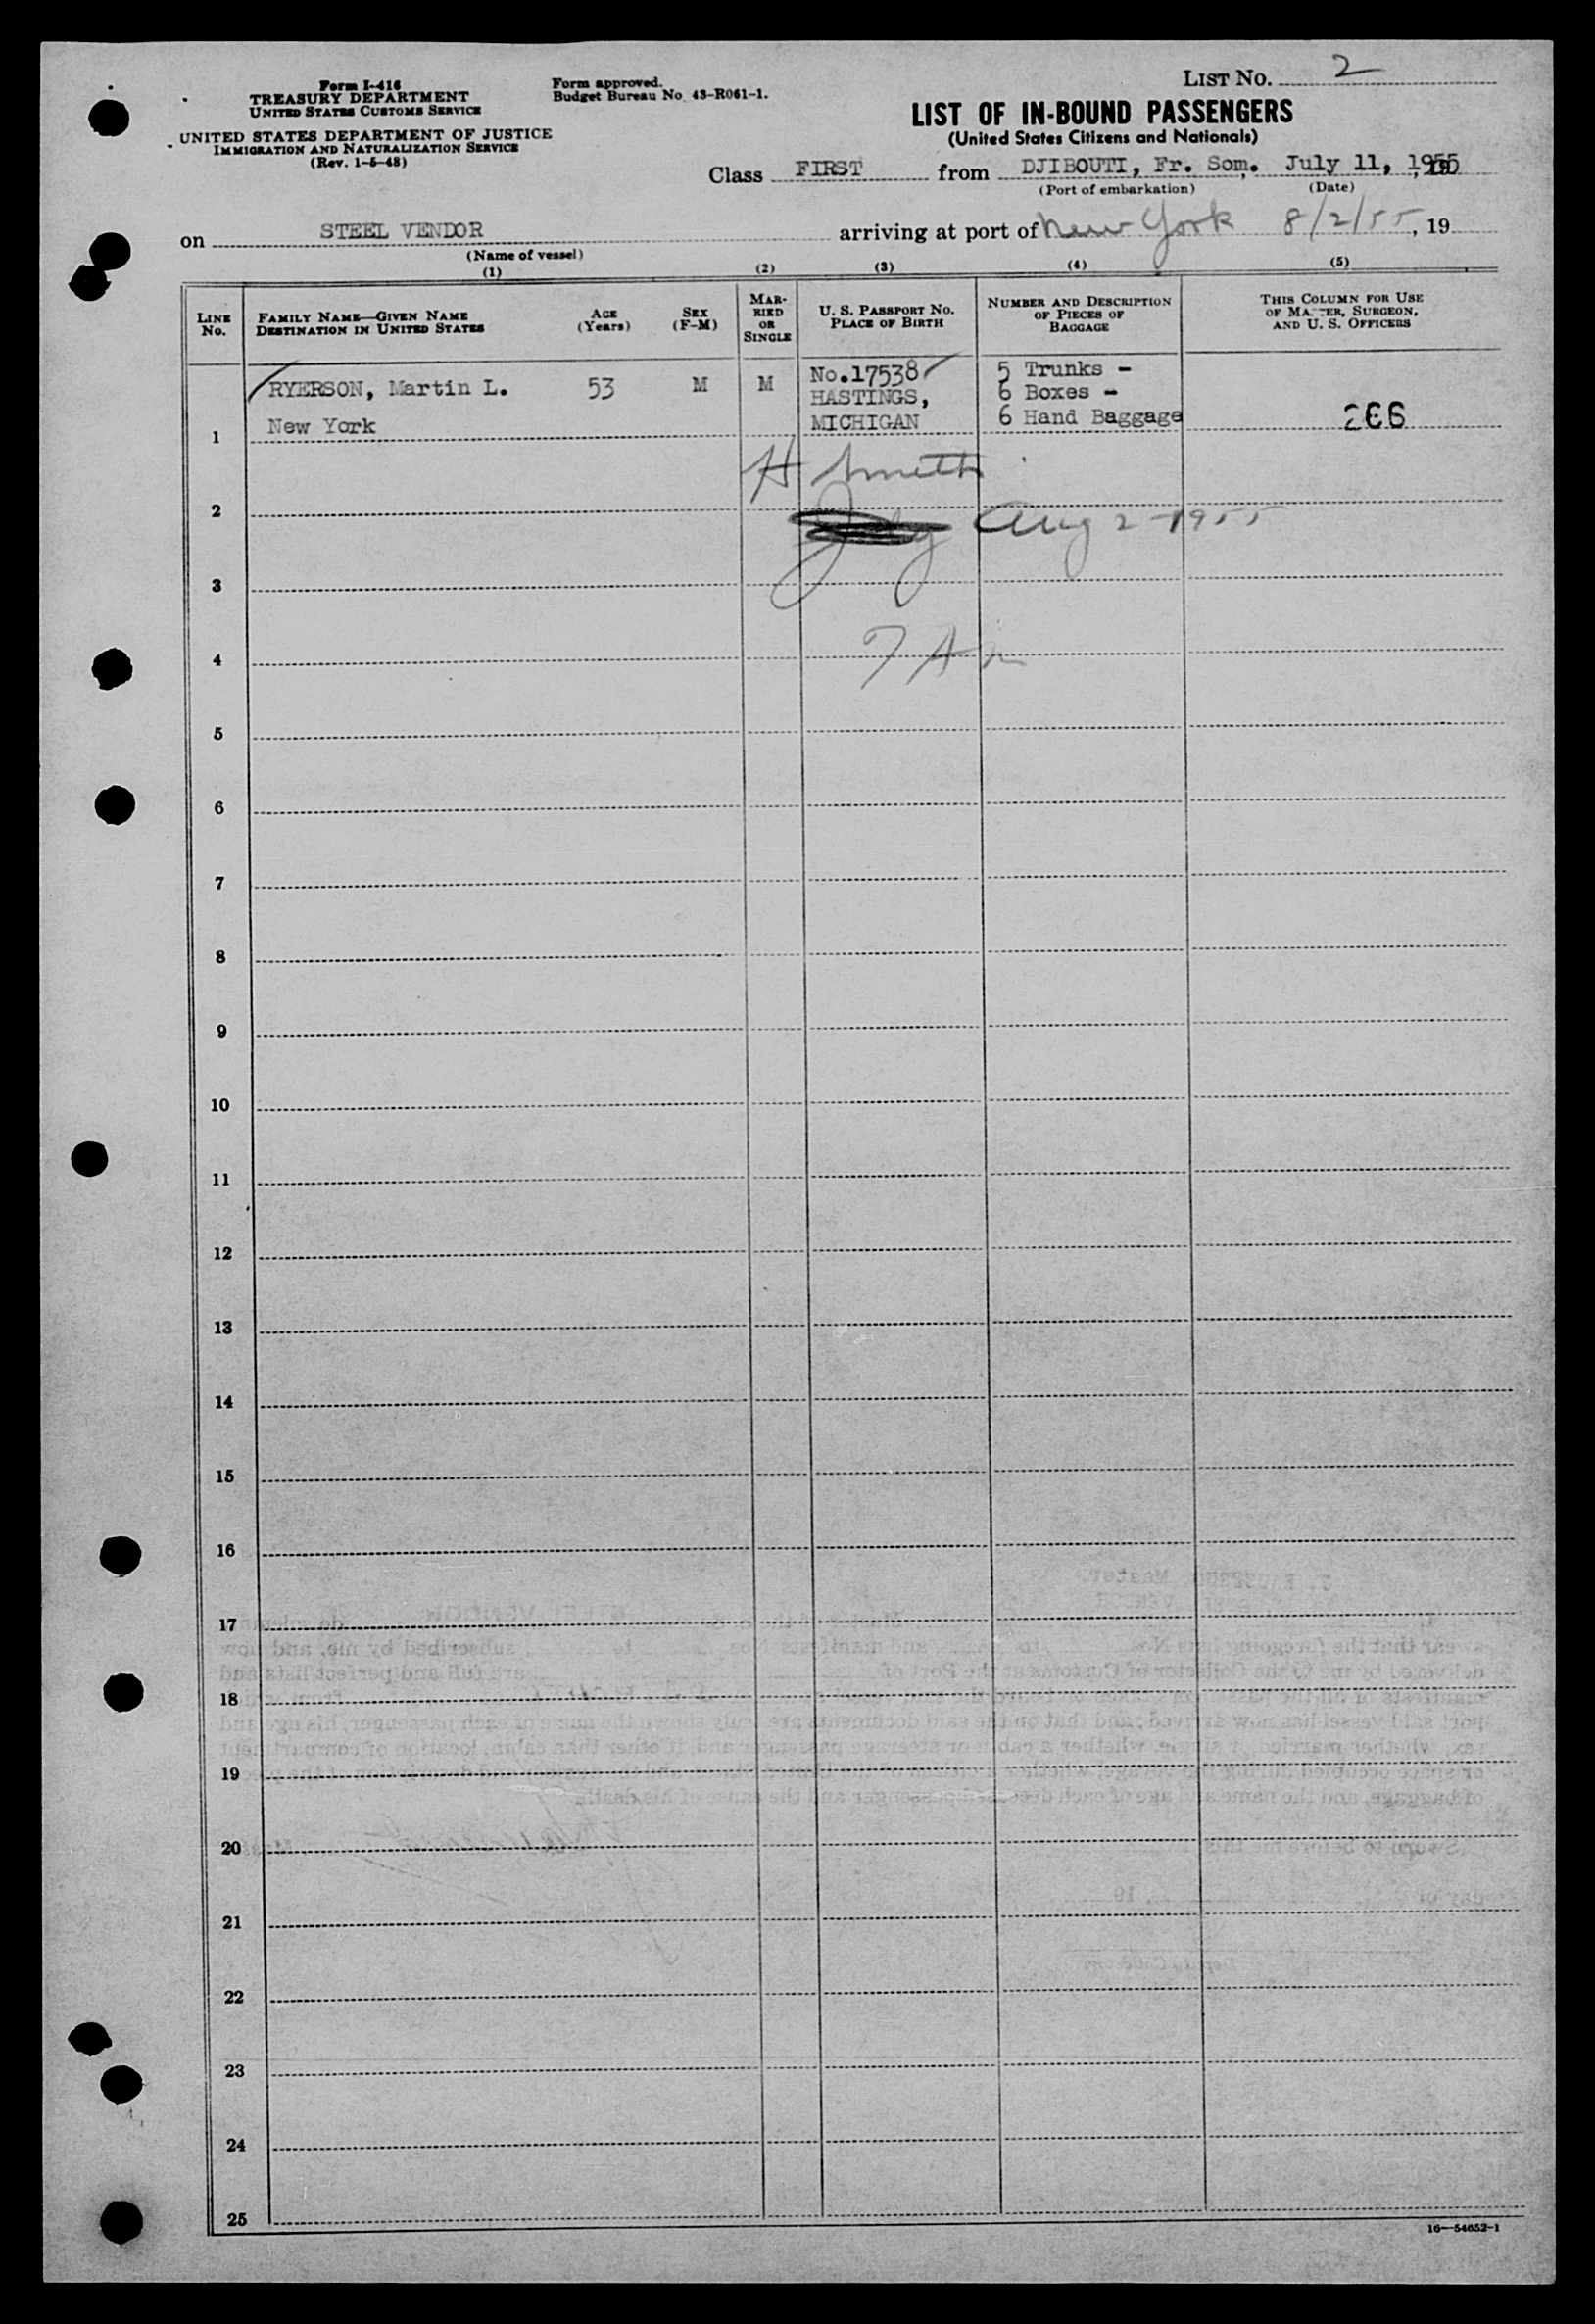 LIST NO. 2
Form I-416
TREASURY DEPARTMENT
UNITED STATES CUSTOMS SERVICE
UNITED STATES DEPARTMENT OF JUSTICE
IMMIGRATION AND NATURALIZATION SERVICE
(Rev. 1-5-48)
Form approved.
Budget Bureau No. 43-R061-1.
LIST OF IN-BOUND PASSENGERS
(United States Citizens and Nationals)
Class FIRST from DJIBOUTI, Fr. Som. July 11, 1955
(Port of embarkation) (Date)
on STEEL VENDOR arriving at port of New York 8/2/55, 19
(Name of vessel)
(1) (2) (3) (4) (5)
LINE No.
FAMILY NAME—GIVEN NAME
DESTINATION IN UNITED STATES
AGE
(Years)
SEX
(F-M)
MAR-
RIED
OR
SINGLE
U. S. PASSPORT No.
PLACE OF BIRTH
NUMBER AND DESCRIPTION
OF PIECES OF
BAGGAGE
THIS COLUMN FOR USE
OF MASTER, SURGEON,
AND U. S. OFFICERS
1
RYERSON, Martin L. 53 M M
New York
No.17538
HASTINGS,
MICHIGAN
5 Trunks -
6 Boxes -
6 Hand Baggage
266
H Smith
2
July Aug 2 - 1955
3
4
7 Am
5
6
7
8
9
10
11
12
13
14
15
16
17
18
19
20
21
22
23
24
25
16—54652-1